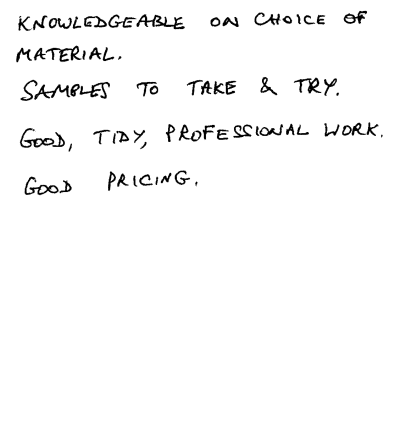 KNOWLEDGEABLE ON CHOICE OF
MATERIAL.
SAMPLES TO TAKE & TRY.
GOOD, TIDY, PROFESSIONAL WORK.
GOOD PRICING.